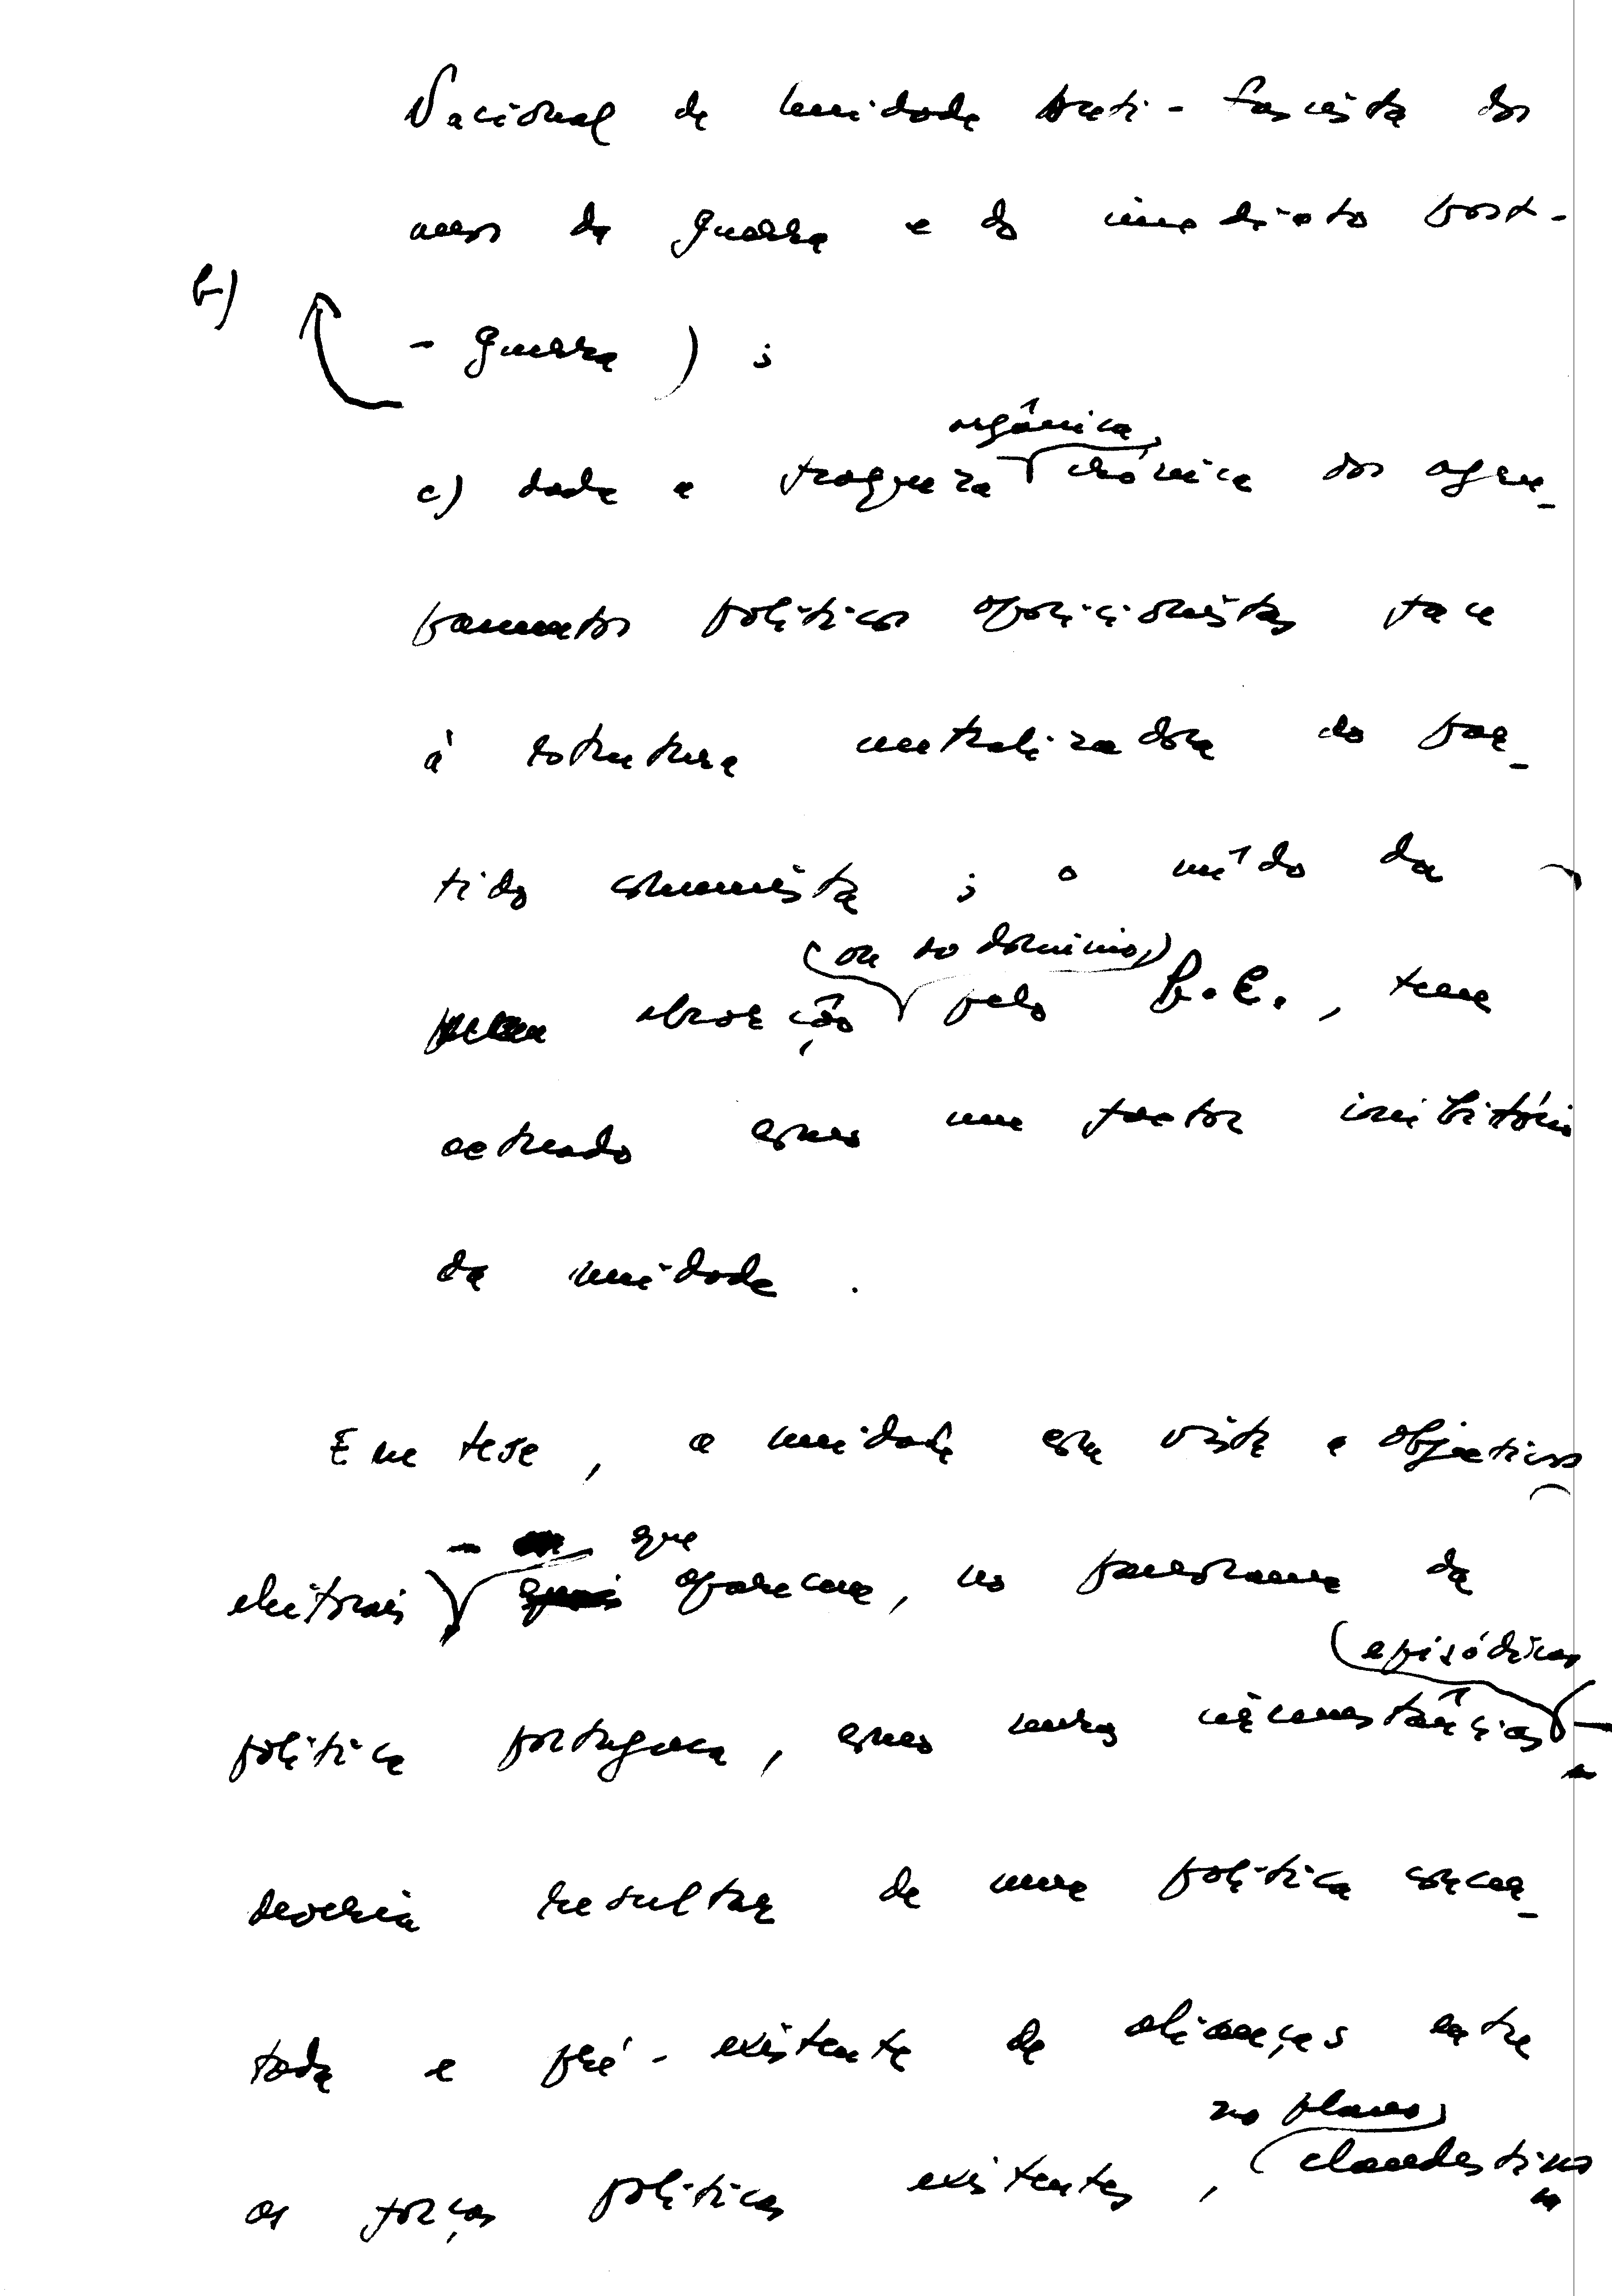 Nacional de Unidade Anti-Fascista dos
anos da guerra e do imediato post-
b)
- guerra) ;
orgânica
c) dada a fraqueza crónica dos agru-
pamentos políticos oposicionistas face
à estrutura centralizadora do par-
tido comunista ; o mêdo da
(ou do domínio)
absorção pelo P.C., tem
actuado como um factor inibitório
da unidade.
Em tese, a unidade com vista a objectivos
- que
eleitorais aparecem, no panorama da
episódicas
política portuguesa, como meras circunstâncias -
deveria resultar de uma política concer-
tada e pré-existente de alianças entre
no plano
as forças políticas existentes, clandestino